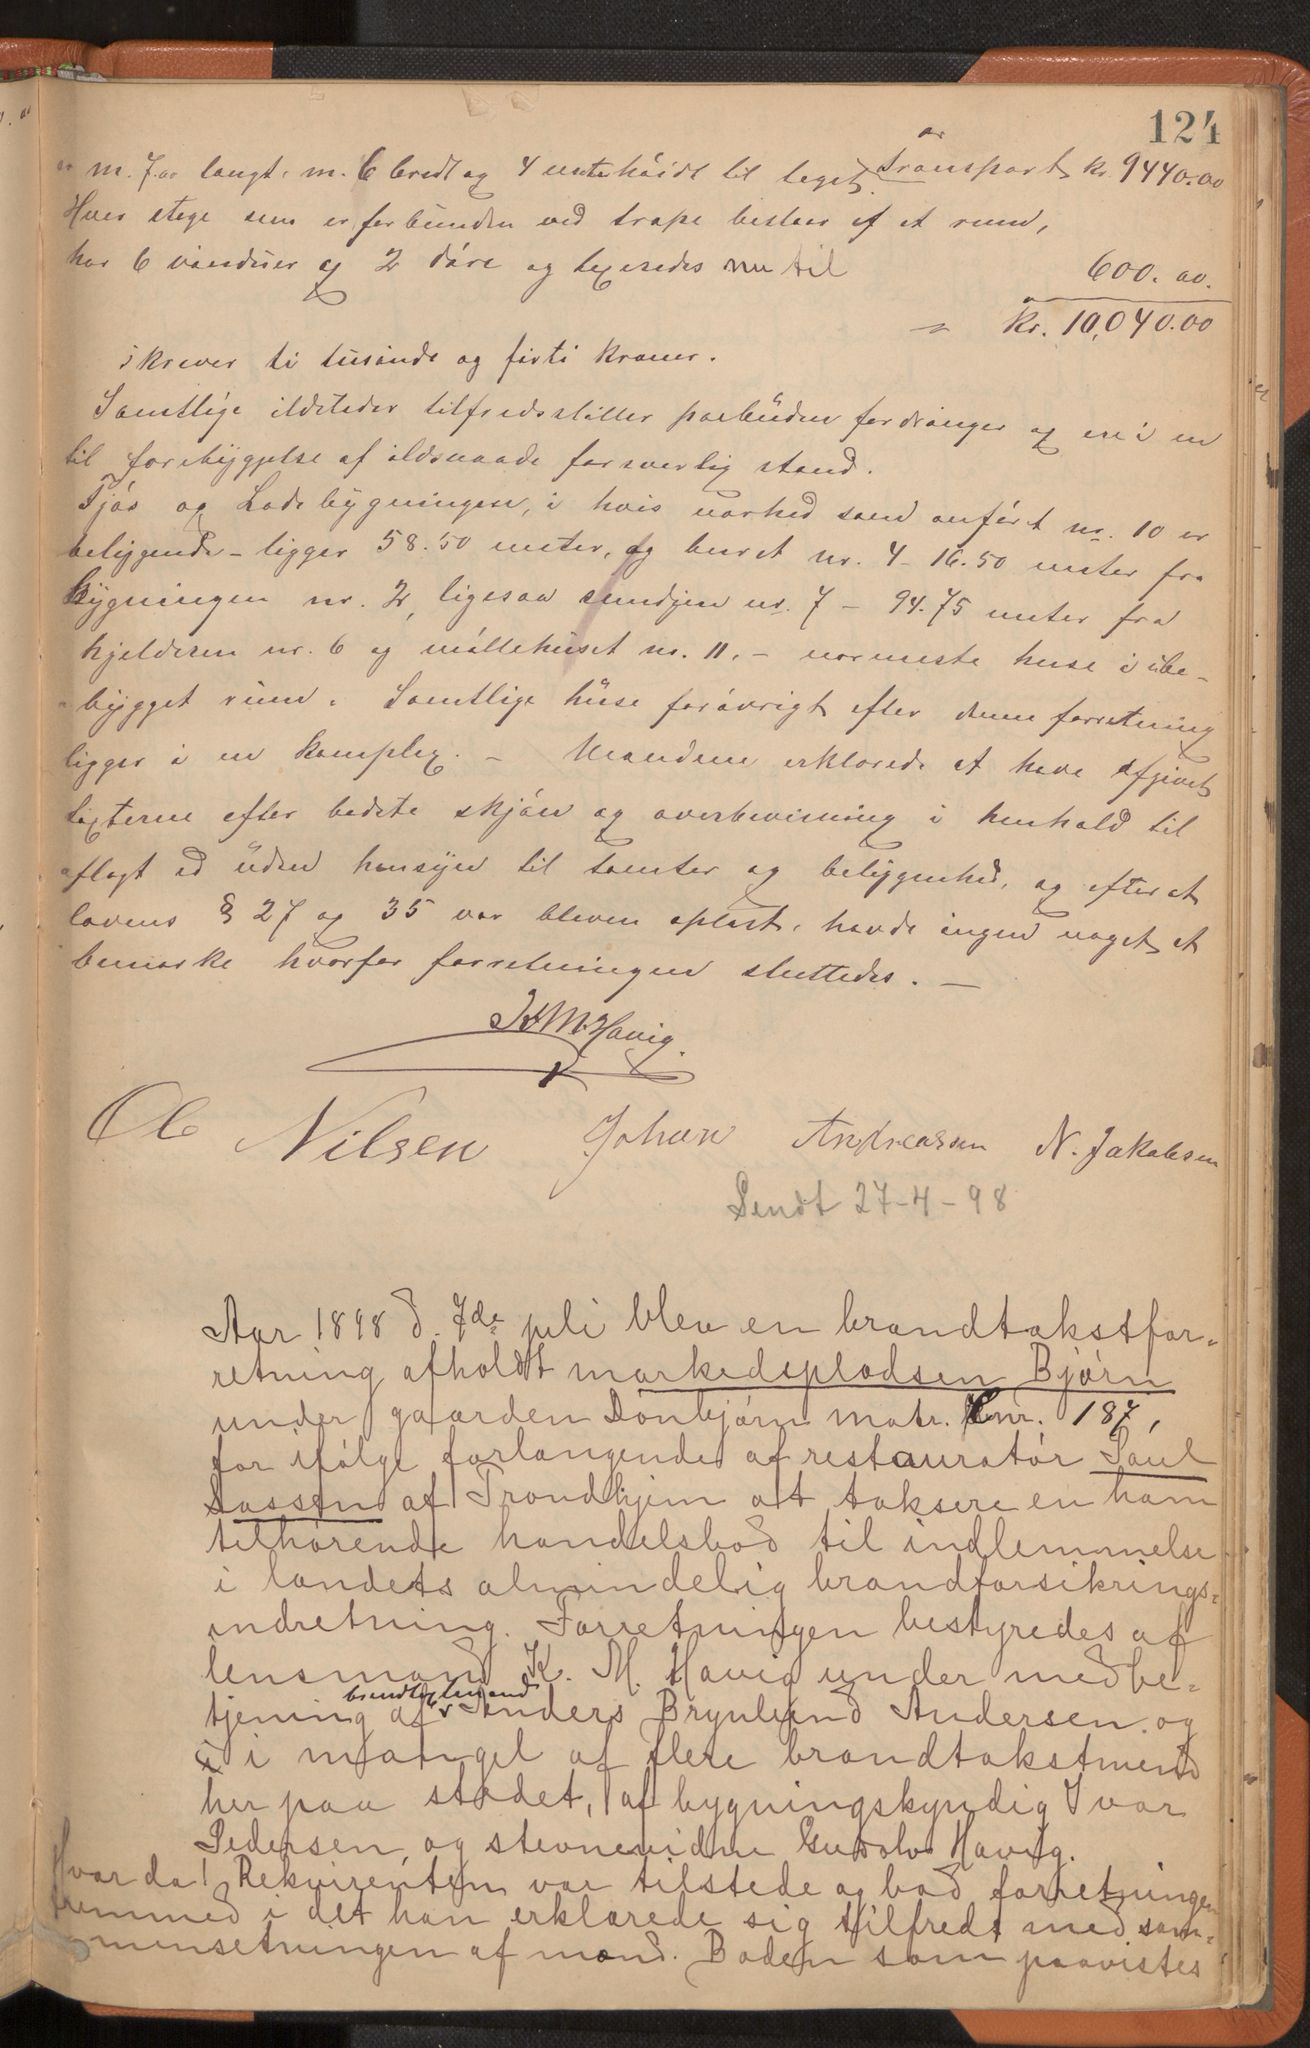 124
m. 7.00 langt, m. 6 bredt og 4 meter høidt til taget. Transport kr. 9440.00
Hver etage som er forbunden ved trape bestaar af et rum,
har 6 vinduer og 2 døre og taxeredes nu til 600.00.
kr. 10,040.00
skriver ti tusinde og firti kroner.
Samtlige ildsteder tilfredsstiller paabudne fordringer og ere i en
til forebyggelse af ildsvaade forsvarlig stand.
Fjøs og Ladebygningen, i hvis nærhed som anført nr. 10 er
beliggende – ligger 58.50 meter, og buret nr. 4 – 16.50 meter fra
bygningen nr. 2, ligesaa smidjen nr. 7 – 94.75 meter fra
hjelderen nr. 6 og møllehuset nr. 11. – nærmeste huse i ube-
bygget rum. Samtlige huse forøvrigt efter denne forretning
ligger i en komplex. – Mændene erklærede at have afgivet
taxterne efter bedste skjøn og overbevisning i henhold til
aflagt ed uden hensyn til tomter og beliggenhed, og efter at
lovens § 27 og 35 var bleven oplæst, havde ingen noget at
bemærke hvorfor forretningen sluttedes. –
K. M. Havig.
Ole Nilsen Johan Andreassen N. Jakobsen
Sendt 27-4-98
Aar 1898 d. 7de juli blev en brandtakstfor-
retning afholdt markedspladsen Bjørn
under gaarden Dønbjørn matr. Lnr. 187,
for ifølge forlangende af restauratør Paul
Sassen af Trondhjem at taksere en ham
tilhørende handelsbod til indlemmelse
i landets almindelig brandforsikrings-
indretning. Forretningen bestyredes af
lensmand K. M. Havig under medbe-
tjening af brandtaxtmand Anders Brynlund Andersen og
i mangel af flere brandtakstmænd
her paa stedet, af bygningskyndig Ivar
Pedersen, og stevnevidne Gudolv Havig.
Hvor da! Rekvirenten var tilstede og bad forretningen
fremmed i det han erklærede sig tilfreds med sam-
mensetningen af mænd. Boden som paavistes